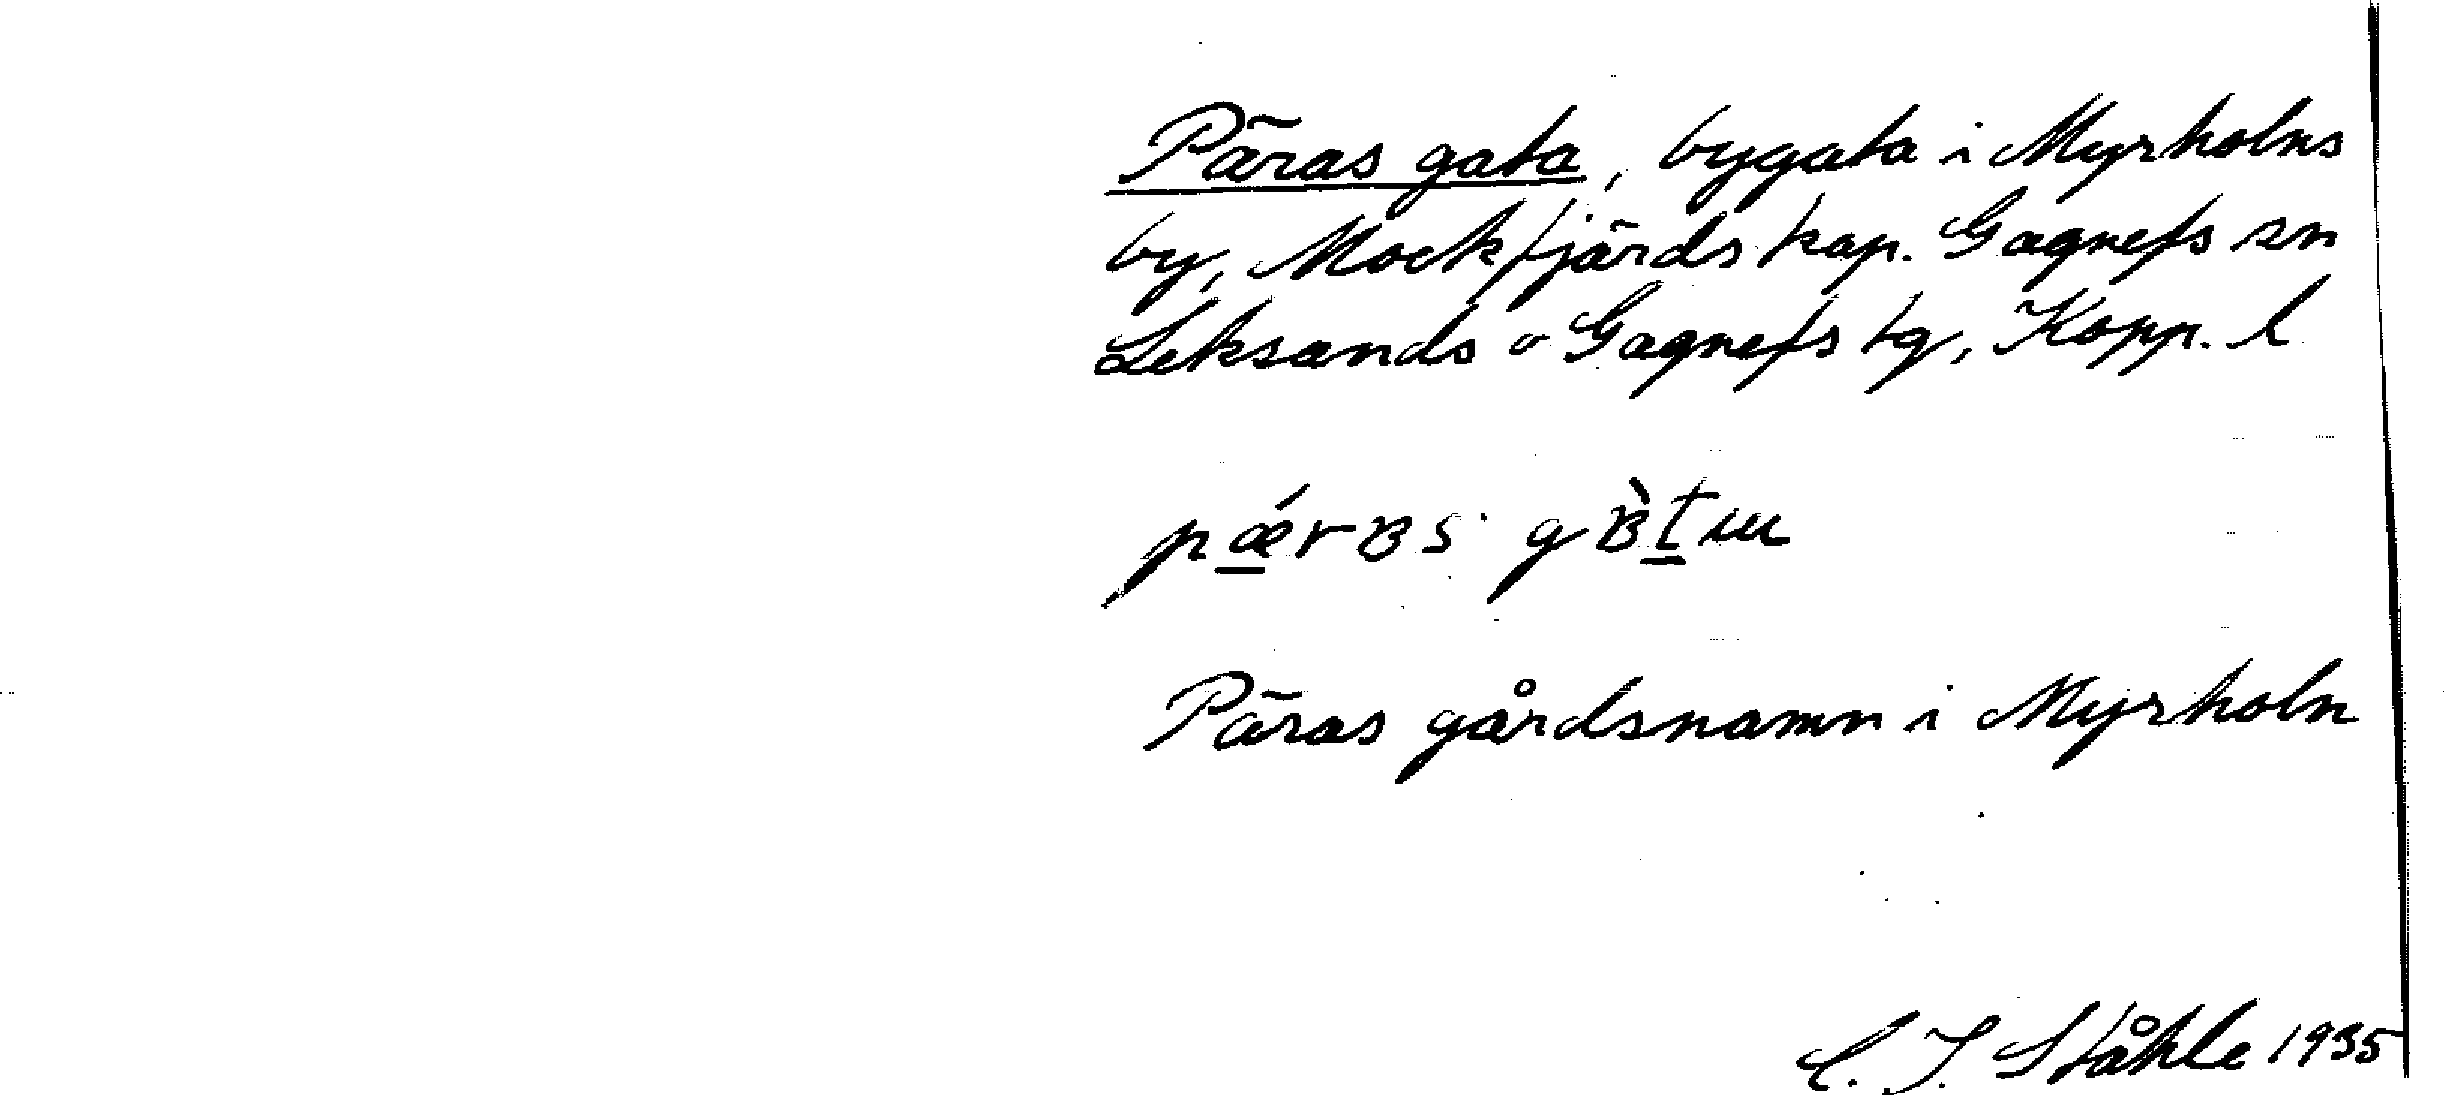 Päras gata, bygata i Myrholns
by, Mockfjärds kap. Gagnefs sn
Leksands o Gagnefs tg, Kopp. l
pǽrʙs gʙ̀tɯ
Päras gårdsnamn i Myrholn
C. I. Ståhle 1935